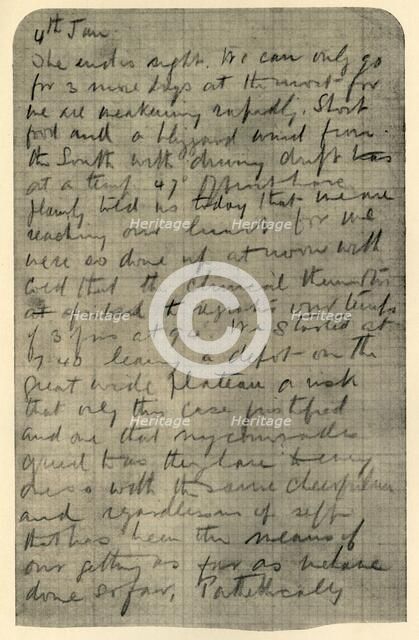 4th Jan.
The end is in sight. We can only go
for 3 more days at the most for
we are weakening rapidly. Short
food and a blizzard wind from
the South with driving drift
at a temp 47°
plainly told us today that we are
reaching our limit for we
were so done up at noon with
cold that the clinical thermometer
failed to register our temps
of 3 at 94°. We started at
7.40 leaving a depot on the
great wide plateau a risk
that only this case justified
and one that my comrades
agreed to as they have to every
one so with the same cheerfulness
and regardlessness of self
that has been the means of
our getting as far as we have
done so far. Pathetically
Heritage
Heritage
Heritage
Heritage
Heritage
Heritage
Heritage
Heritage
C